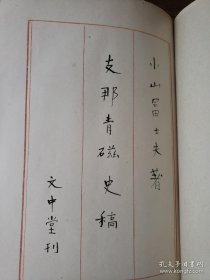 小山冨士夫著
支那青磁史稿
文中堂刊